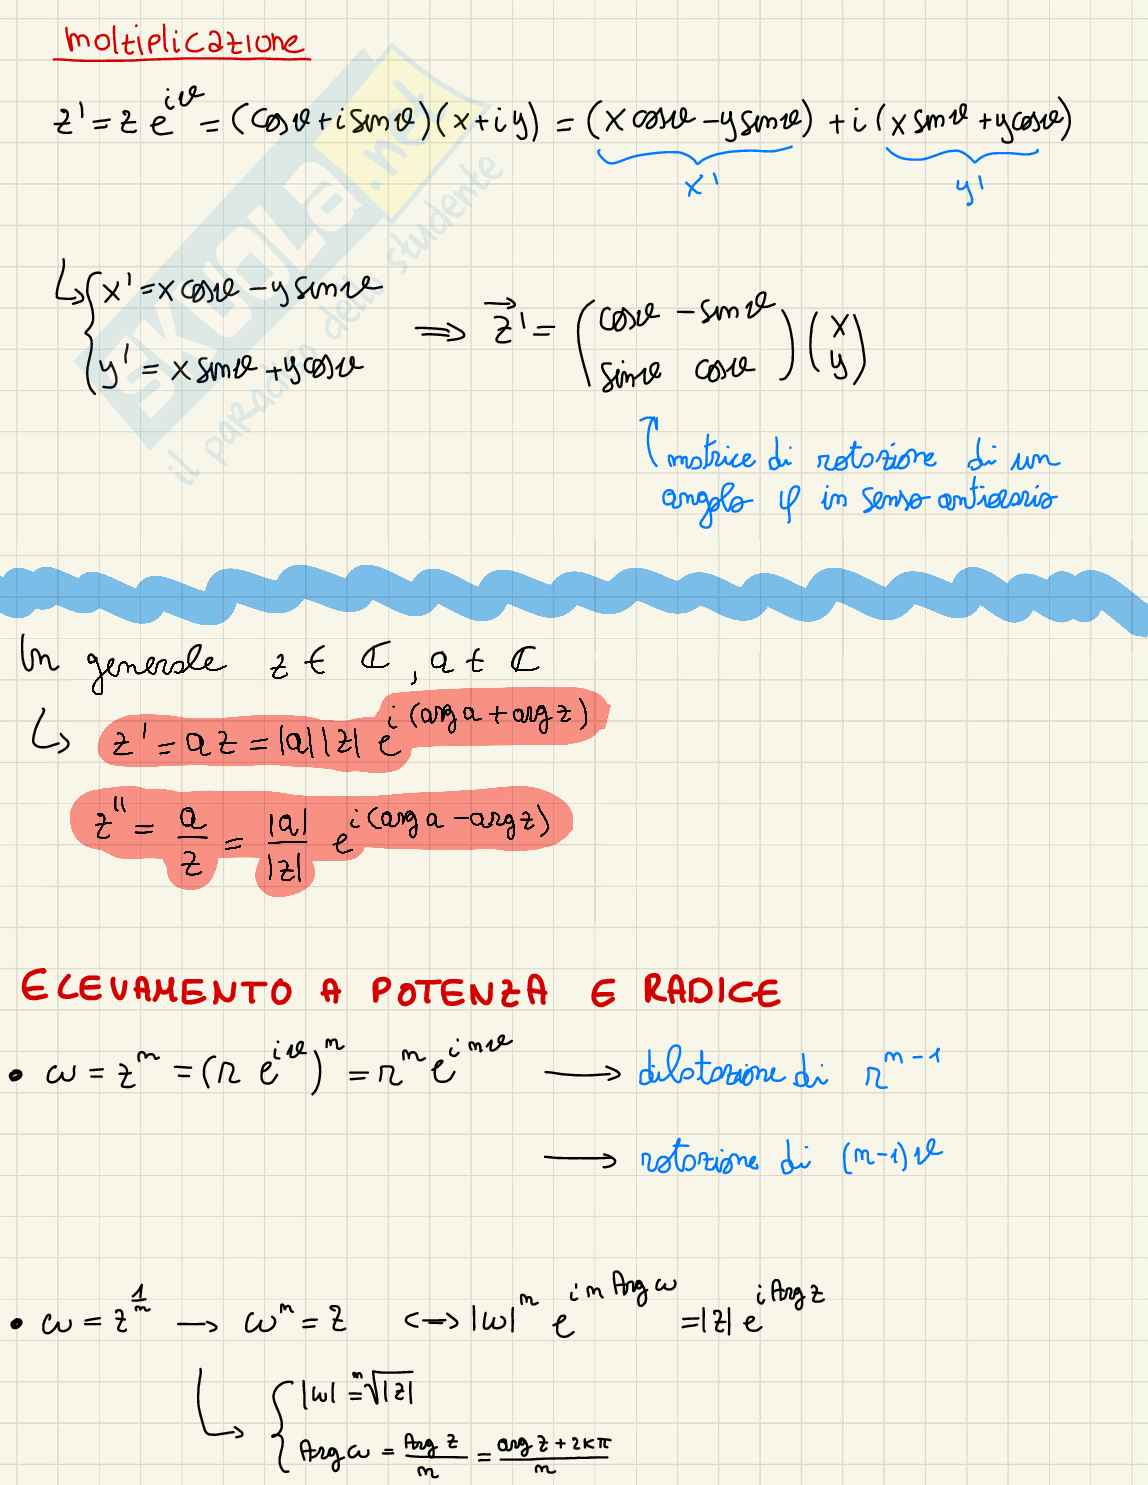 moltiplicazione
z' = z e^{iϑ} = (cosϑ + i sinϑ)(x + iy) = (x cosϑ - y sinϑ) + i (x sinϑ + y cosϑ)
x' y'
↳ { x' = x cosϑ - y sinϑ
y' = x sinϑ + y cosϑ
⟹ \vec{z}' = ( cosϑ - sinϑ
sinϑ cosϑ ) ( x
y )
matrice di rotazione di un
angolo φ in senso antiorario
SKUOLa.net
il paradiso dello studente
In generale z ∈ ℂ, a ∈ ℂ
↳ z' = az = |a||z| e^{i(arg a + arg z)}
z'' = a/z = |a|/|z| e^{i(arg a - arg z)}
ELEVAMENTO A POTENZA E RADICE
• ω = z^n = (r e^{iϑ})^n = r^n e^{inϑ} ⟶ dilatazione di r^{n-1}
⟶ rotazione di (n-1)ϑ
• ω = z^{1/n} → ω^n = z ⟷ |ω|^n e^{i n Arg ω} = |z| e^{i Arg z}
↳ { |ω| = ⁿ√|z|
Arg ω = Arg z / n = arg z + 2kπ / n